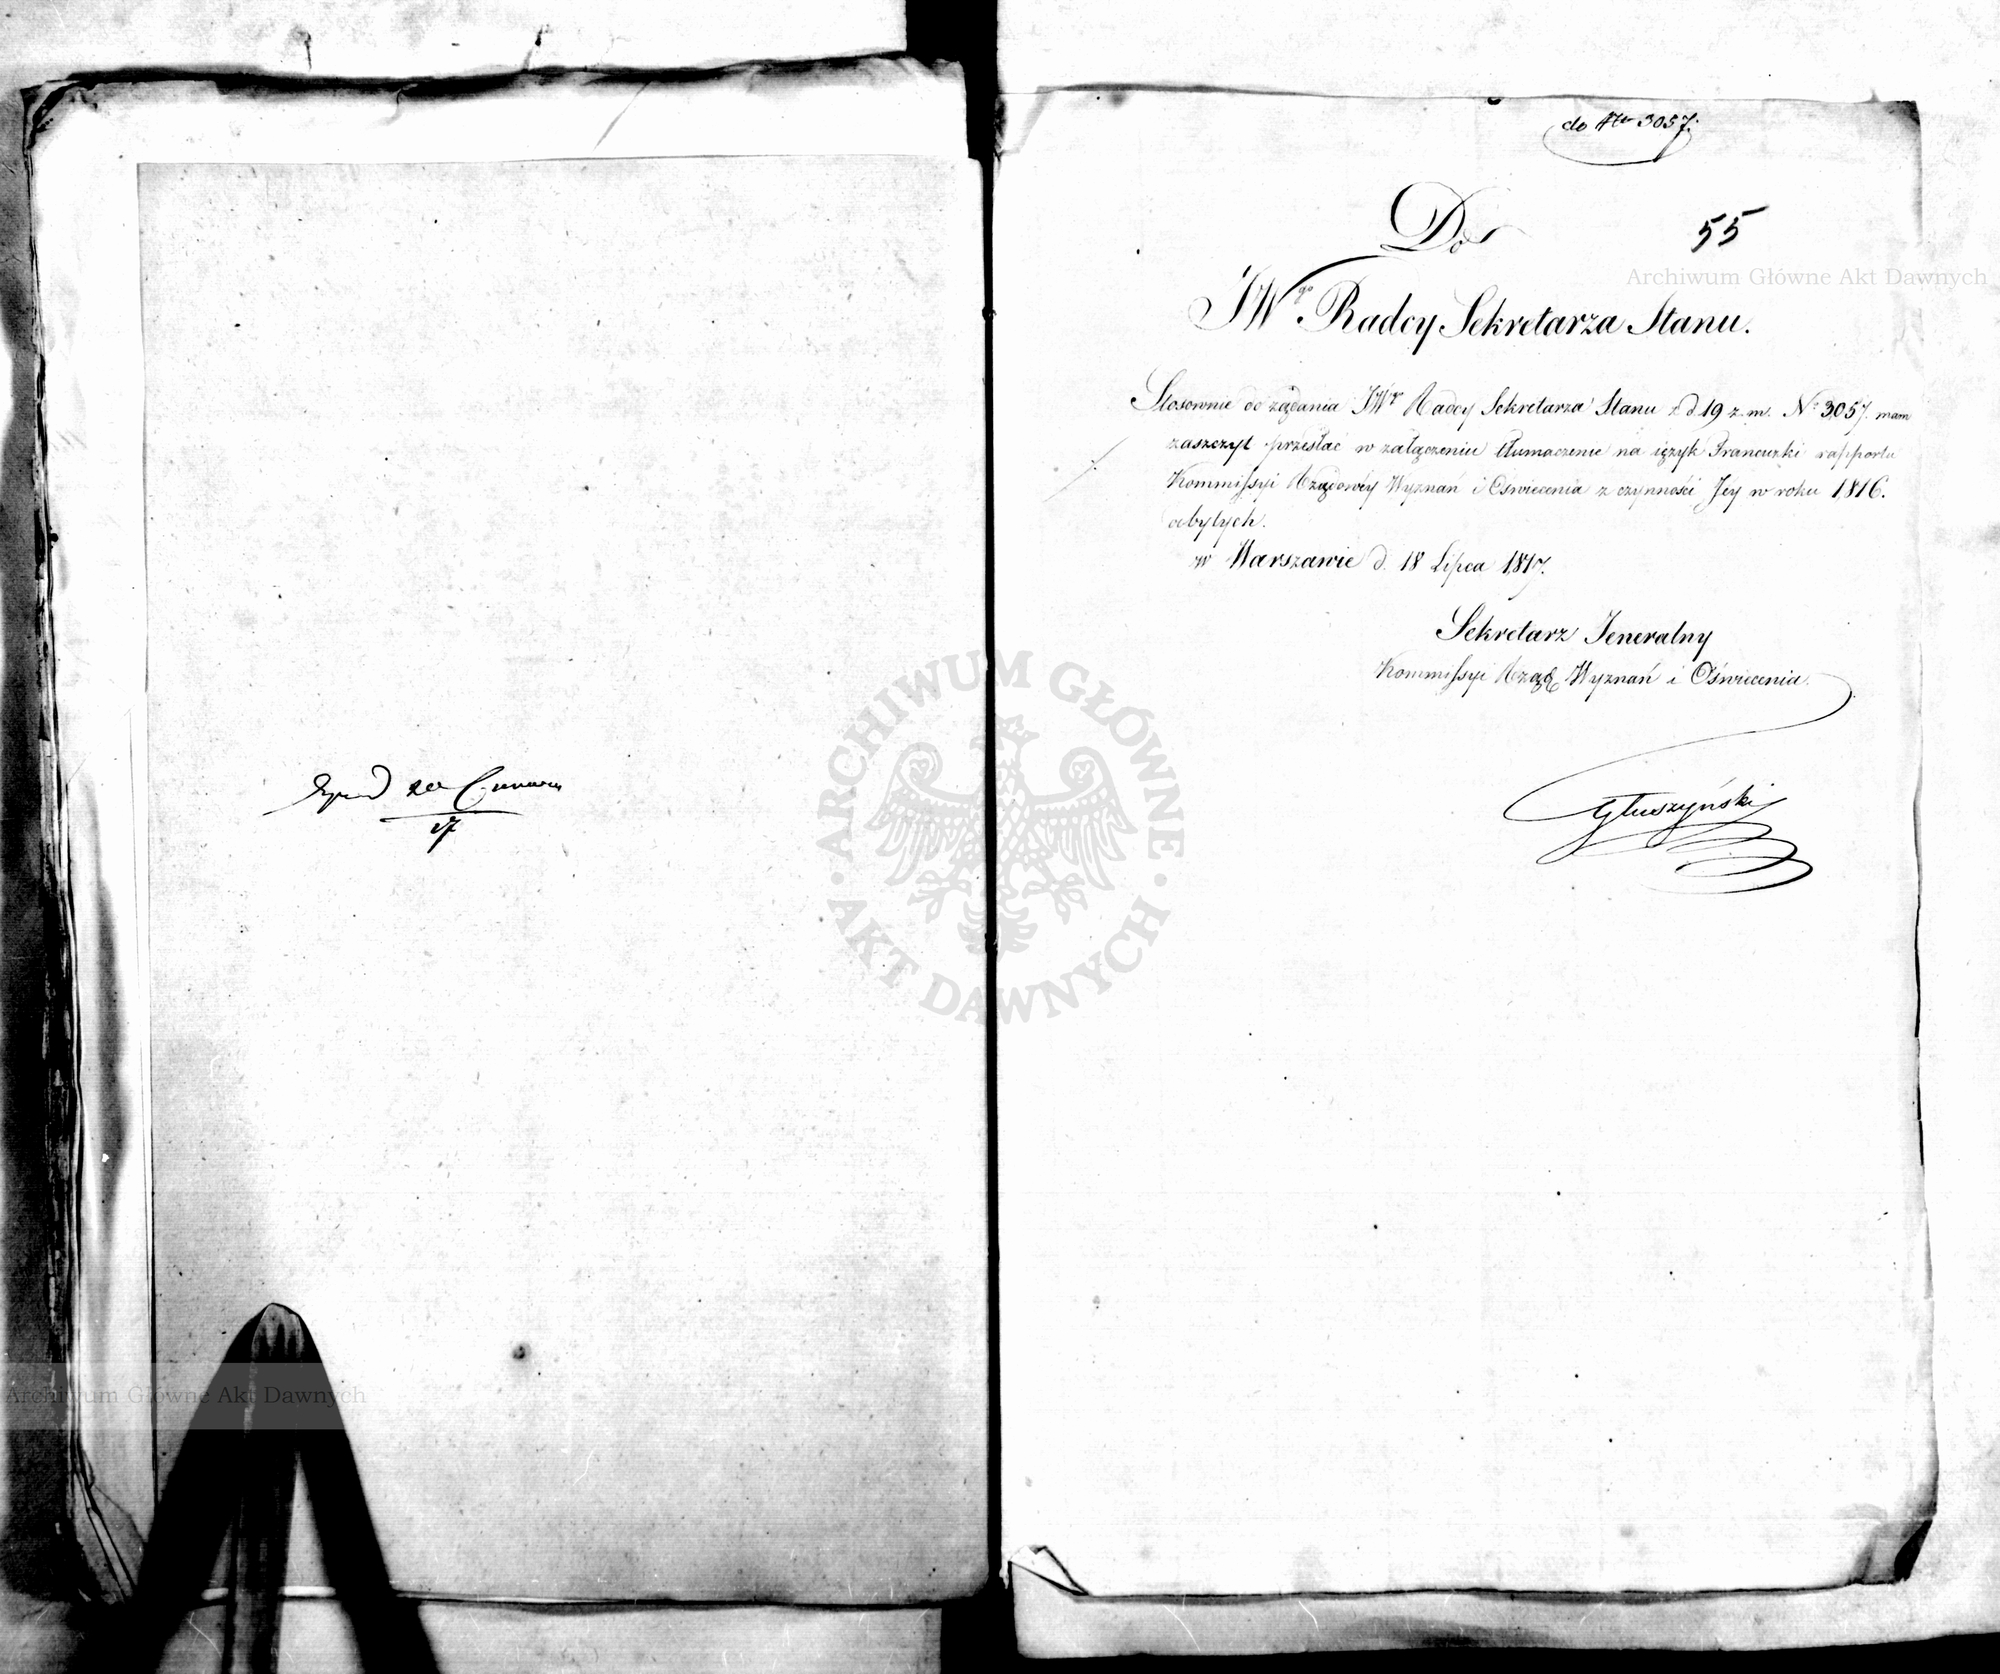 17
do Nru 3057.
55
Do
JWgo. Radcy Sekretarza Stanu.
Stosownie do żądania JWo Radcy Sekretarza Stanu z d. 19 z. m. No 3057. mam
zaszczyt przesłać w załączeniu tłumaczenie na ięzyk Francuzki rapportu
Kommissyi Rządowéy Wyznań i Oświecenia z czynności Jey w roku 1816.
odbytych.
w Warszawie d. 18 Lipca 1817.
Sekretarz Jeneralny
Kommissyi Rząd. Wyznań i Oświecenia.
Głuszyński
Archiwum Główne Akt Dawnych
ARCHIWUM GŁÓWNE
· AKT DAWNYCH ·
Archiwum Główne Akt Dawnych